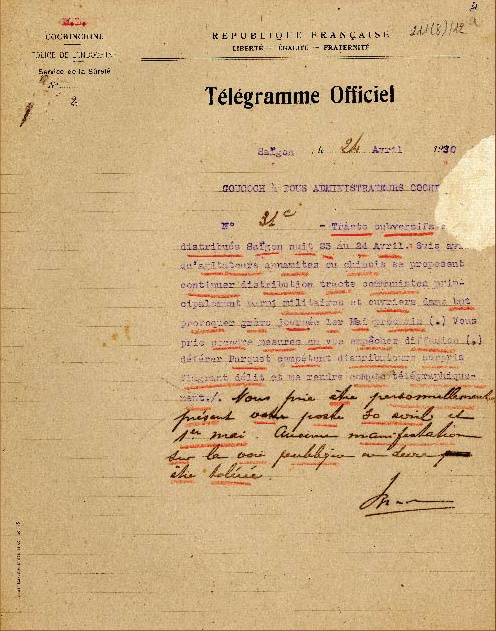 COCHINCHINE
POLICE DE L'INDOCHINE
Service de la Sûreté
N°
2
211(8)/12
REPUBLIQUE FRANÇAISE
LIBERTÉ — ÉGALITÉ — FRATERNITÉ
Télégramme Officiel
Saïgon, le 24 Avril 1930
GOUCOCH à TOUS ADMINISTRATEURS COCHI
N° 31c - Tracts subversifs
distribués Saïgon nuit 23 au 24 Avril. Suis avi
qu'agitateurs annamites ou chinois se proposent
continuer distribution tracts communistes prin-
cipalement parmi militaires et ouvriers dans but
provoquer grève journée 1er Mai prochain (.) Vous
prie prendre mesures en vue empêcher diffusion (.)
déférer Parquet compétent distributeurs surpris
flagrant délit et me rendre compte télégraphique-
ment./. Vous prie être personnellement
présent votre poste 30 avril et
1er mai. Aucune manifestation
sur la voie publique ne devra
être tolérée